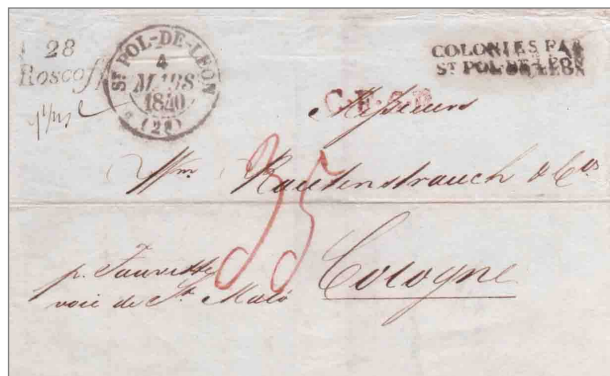 28
Roscoff
ST POL-DE-LEON
4
MARS
1840
(28)
COLONIES PAR
ST POL DE LEON
Messieurs
Wm Rautenstrauch & Co
35
voie de St Malo
Cologne